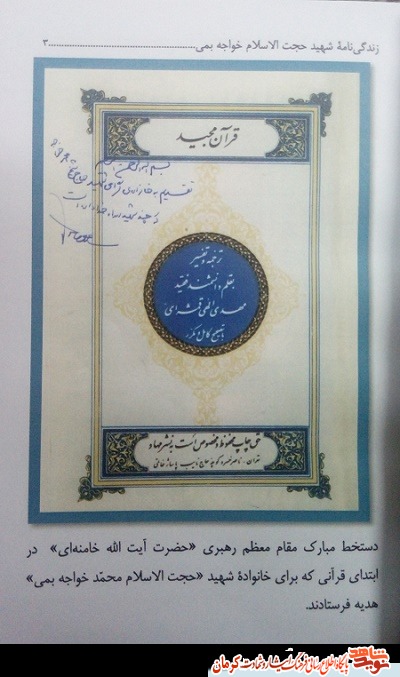 زندگی‌نامهٔ شهید حجت الاسلام خواجه بمی..................................................۳
قرآن مجید
ترجمه و تفسیر
بقلم دانشمند فقید
مهدی الهی قمشه‌ای
حق چاپ محفوظ و مخصوص است به نشر
تهران - ناصرخسرو کوچه حاج نایب پاساژ خاتمی
دستخط مبارک مقام معظم رهبری «حضرت آیت الله خامنه‌ای» در
ابتدای قرآنی که برای خانوادهٔ شهید «حجت الاسلام محمّد خواجه بمی»
هدیه فرستادند.
پایگاه اطلاع رسانی فرهنگ ایثار و شهادت کرمان
نوید شاهد